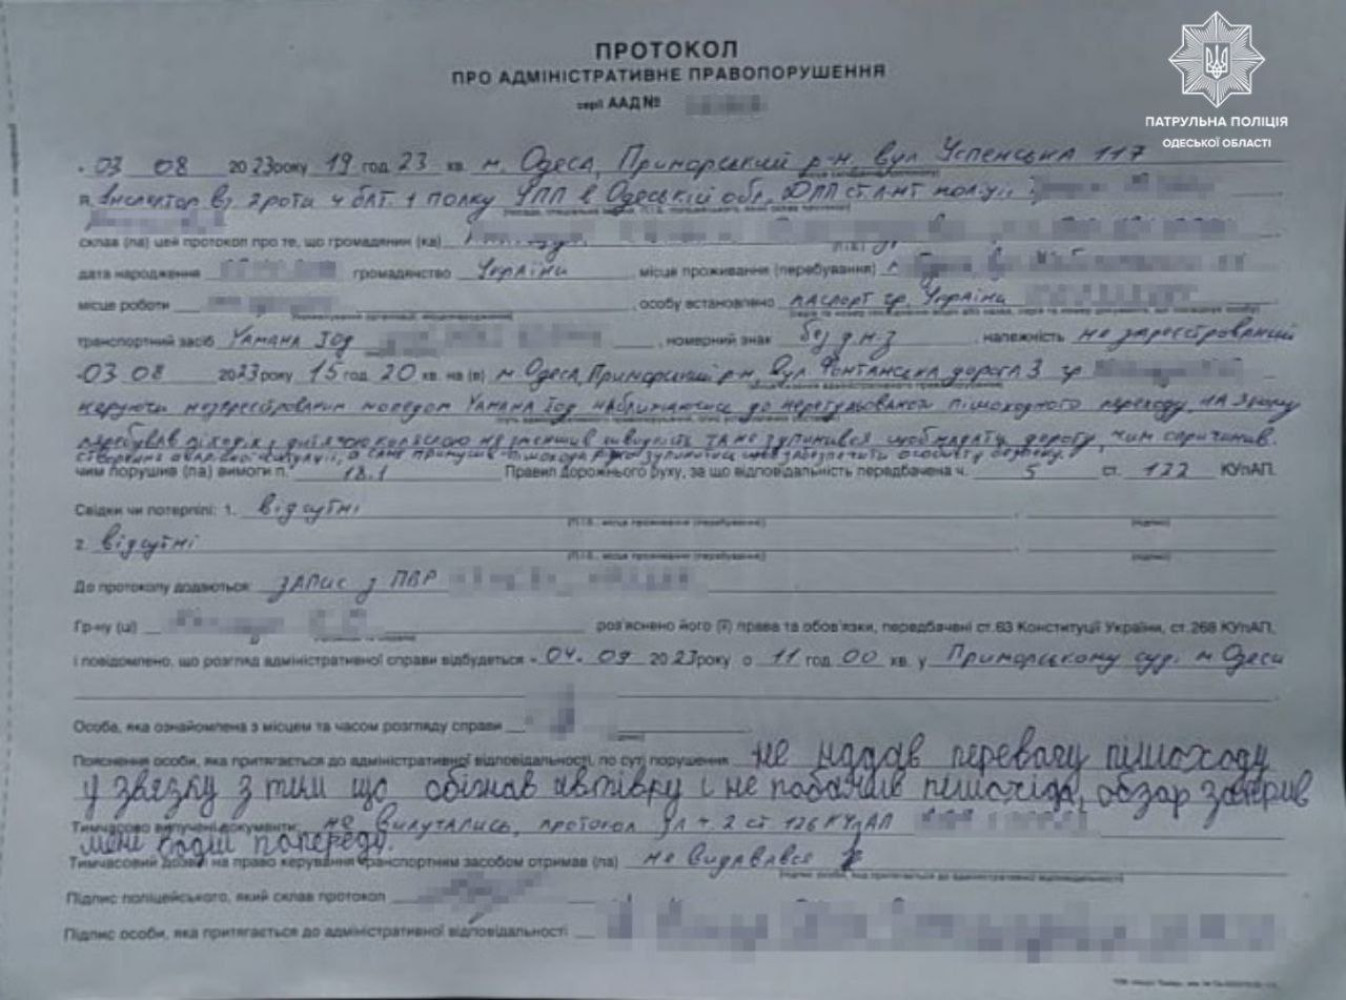 ПРОТОКОЛ
ПРО АДМІНІСТРАТИВНЕ ПРАВОПОРУШЕННЯ
серії ААД №
ПАТРУЛЬНА ПОЛІЦІЯ
ОДЕСЬКОЇ ОБЛАСТІ
03 08 2023 року 19 год 23 хв. м. Одеса, Приморський р-н, вул Успенська 117
Я, Інспектор 2 роти 4 бат. 1 полку УПП в Одеській обл. ДПП ст. л-нт поліції
склав (ла) цей протокол про те, що громадянин (ка)
дата народження громадянство Україна місце проживання (перебування)
місце роботи , особу встановлено паспорт гр. України
транспортний засіб Yamaha Jog , номерний знак без д.н.з , належність не зареєстрований
03 08 2023 року 15 год 20 хв. на (в) м. Одеса, Приморський р-н, вул Фонтанська дорога 3 гр
керуючи незареєстрованим мопедом Yamaha Jog наближаючись до нерегульованого пішохідного переходу, на якому
перебував пішохід з дитячою коляскою не зменшив швидкість та не зупинився щоб надати дорогу, чим спричинив
створення аварійної ситуації, а саме примусив пішохода зупинитися щоб забезпечити особисту безпеку.
чим порушив (ла) вимоги п. 18.1 Правил дорожнього руху, за що відповідальність передбачена ч. 5 ст. 122 КУпАП.
Свідки чи потерпілі: 1. відсутні
(П.І.Б., місце проживання (перебування)) (підпис)
2. відсутні
(П.І.Б., місце проживання (перебування)) (підпис)
До протоколу додаються: запис з ПВР
Гр-ну (ці) роз'яснено його (її) права та обов'язки, передбачені ст.63 Конституції України, ст.268 КУпАП,
і повідомлено, що розгляд адміністративної справи відбудеться 04. 09 2023 року о 11 год 00 хв. у Приморському суд. м Одеси
Особа, яка ознайомлена з місцем та часом розгляду справи
(підпис)
Пояснення особи, яка притягається до адміністративної відповідальності, по суті порушення не надав перевагу пішоходу
у звязку з тим що обїжав автівку і не побачив пішохіда, обзар закрив
Тимчасово вилучені документи: не вилучались, протокол ч. 2 ст 126 КУпАП
мені водій попереду.
Тимчасовий дозвіл на право керування транспортним засобом отримав (ла) не видавався
Підпис поліцейського, який склав протокол
Підпис особи, яка притягається до адміністративної відповідальності